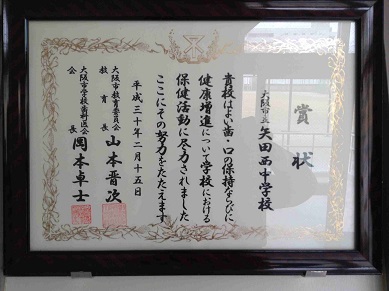 賞状
大阪市立矢田西中学校
貴校はよい歯・口の保持ならびに
健康増進について学校における
保健活動に尽力されました
ここにその努力をたたえます
平成三十年二月十五日
大阪市教育委員会
教育長 山本晋次
大阪市学校歯科医会
会長 岡本卓士